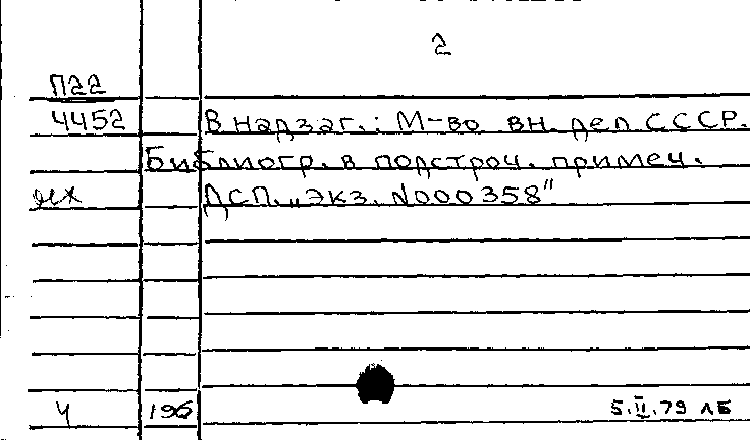 2
П22
4452 В надзаг.: М-во вн. дел СССР.
Библиогр. в подстроч. примеч.
ДСП. „Экз. N000358"
4 196 5.II.79 ЛБ